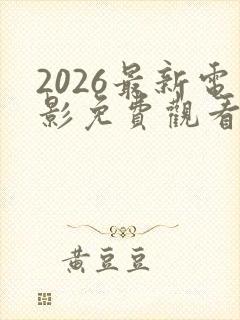 2026最新電
影免費觀看
黃豆豆